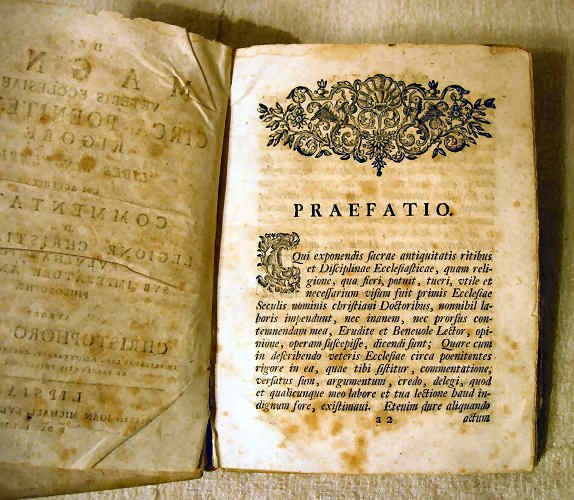 DE
MAGN
VETERIS ECCLESIAE
CIRCA POENITE
RIGORE
COMMENTA
DE
LEGIONE CHRISTI
CHRISTOPHORO
LIPSI
PRAEFATIO.
Qui exponendis sacrae antiquitatis ritibus
et Disciplinae Ecclesiasticae, quam reli-
gione, qua fieri, potuit, tueri, vtile et
necessarium visum fuit primis Ecclesiae
Seculis nominis christiani Doctoribus, nonnihil la-
boris impendunt, nec inanem, nec prorsus con-
temnendam mea, Erudite et Beneuole Lector, opi-
nione, operam suscepisse, dicendi sunt; Quare cum
in describendo veteris Ecclesiae circa poenitentes
rigore in ea, quae tibi sistitur, commentatione,
versatus sum, argumentum, credo, delegi, quod
et qualicunque meo labore et tua lectione haud in-
dignum fore, existimaui. Etenim dure aliquando
a 2 actum